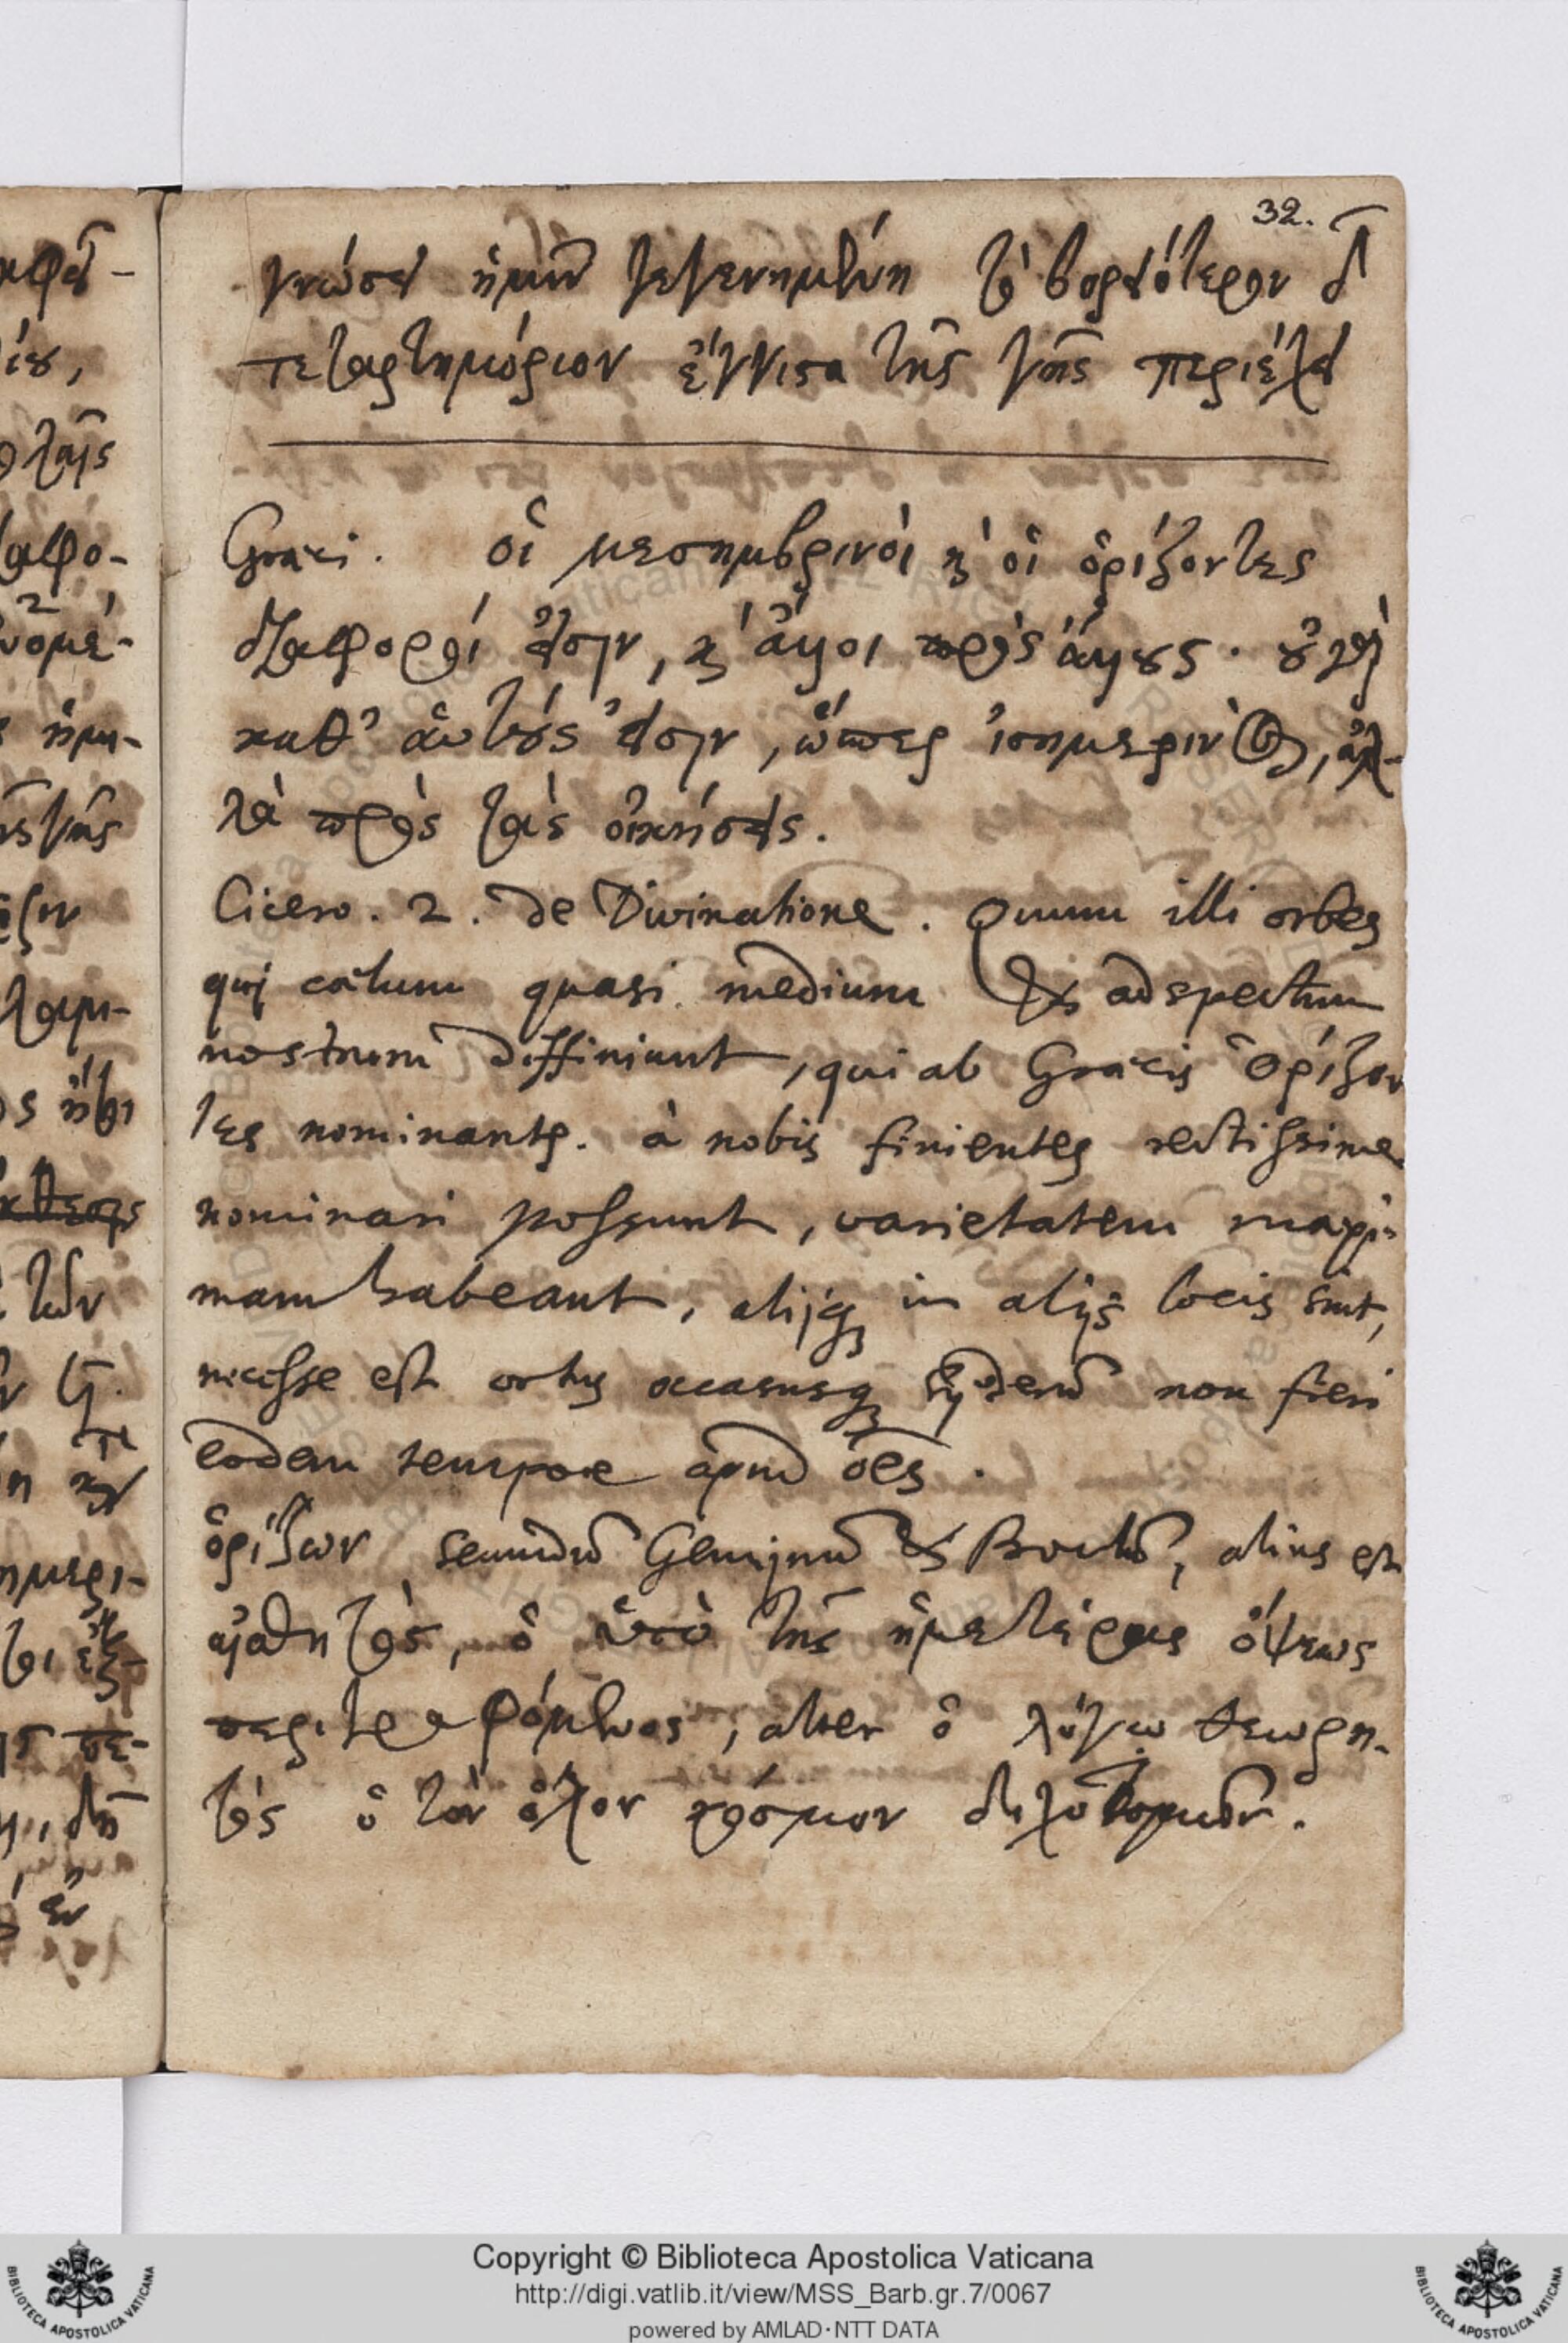 32.
γνώσει ἡμῖν γεγενημένη τὸ βορειότερον
τεταρτημόριον ἔγγιστα τῆς γῆς περιέχει
Græci. οἱ μεσημβρινοὶ κ οἱ ὁρίζοντες
διάφοροί εἰσιν, κ ἄλλοι πρὸς ἄλλους. οὐ γὰρ
καθ' αὑτούς εἰσιν, ὥσπερ ἰσημερινὸς, ἀλ-
λὰ πρὸς τὰς οἰκήσεις.
Cicero. 2. de Divinatione. Quum illi orbes
quj cœlum quasi medium & adspectum
nostrum diffiniunt, qui ab Græcis ὁρίζον
τες nominants. à nobis finientes rectissime
nominari possunt, varietatem maxi-
mam habeant, alijq in alijs locis sint,
necesse est ortus occasusq syderū non fieri
eodem tempore apud ōes.
ὁρίζων secundū Geminū & Proclū, alius est
αἰσθητὸς, ὁ ὑπὸ τῆς ἡμετέρας ὄψεως
περιγραφόμενος, alter ὁ λόγῳ θεωρη-
τὸς ὁ τὸν ὅλον κόσμον διχοτομῶν.
αφο-
ημερι-
Copyright © Biblioteca Apostolica Vaticana
http://digi.vatlib.it/view/MSS_Barb.gr.7/0067
powered by AMLAD·NTT DATA
BIBLIOTECA APOSTOLICA VATICANA
BIBLIOTECA APOSTOLICA VATICANA